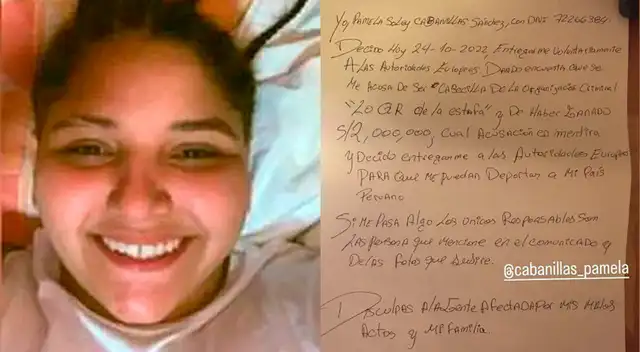 Yo, Pamela Soley CABANILLAS Sánchez, con DNI 72266384.
Decido Hoy 24-10-2022, Entregarme Voluntariamente
A las Autoridades Europeas, DADO encuenta que se
Me Acusa De Ser "CABECILLA De La Organización Criminal
"Lo QR de la estafa" y De Haber GANADO
S/2,000,000, Cual Acusación es mentira
y Decido entregarme a las Autoridades Europeas
PARA Que me puedan Deportar a Mi País
Peruano
Si Me PASA Algo Los únicos Responsables Son
LAS persona que mencione en el comunicado y
De las fotos que
@cabanillas_pamela
Disculpas A la gente Afectada por mis malos
Actos y Mi Familia